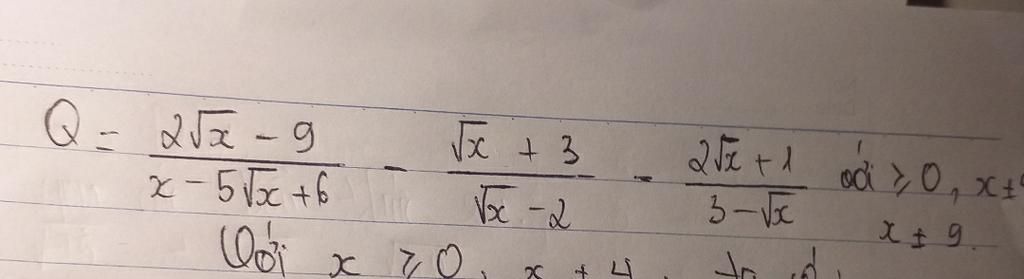 Q = \frac{2\sqrt{x} - 9}{x - 5\sqrt{x} + 6} - \frac{\sqrt{x} + 3}{\sqrt{x} - 2} - \frac{2\sqrt{x} + 1}{3 - \sqrt{x}} với ≥ 0, x ±
x ± 9.
Với x ≥ 0, x ± 4,